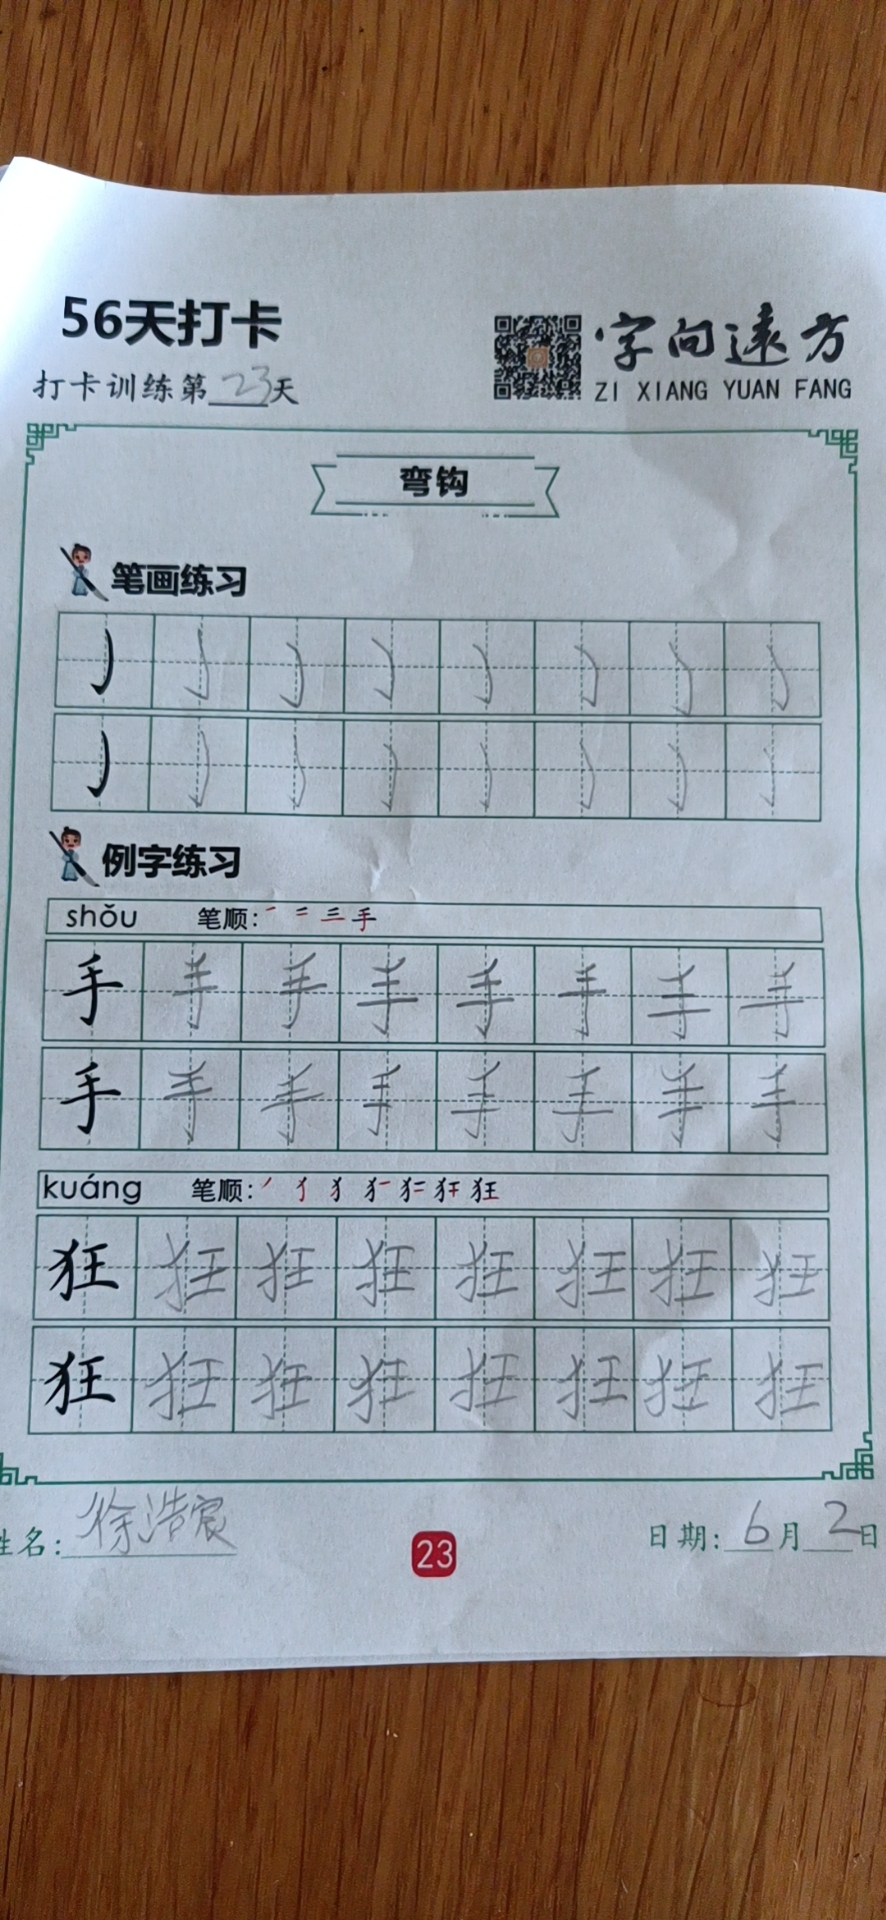 56天打卡
打卡训练第23天
字向远方
ZI XIANG YUAN FANG
弯钩
笔画练习
㇁ ㇁ ㇁ ㇁ ㇁ ㇁ ㇁ ㇁
㇁ ㇁ ㇁ ㇁ ㇁ ㇁ ㇁ ㇁
例字练习
shǒu 笔顺: 一 二 三 手
手 手 手 手 手 手 手 手
手 手 手 手 手 手 手 手
kuáng 笔顺:
狂 狂 狂 狂 狂 狂 狂 狂
狂 狂 狂 狂 狂 狂 狂 狂
姓名: 徐浩宸
23
日期: 6月2日